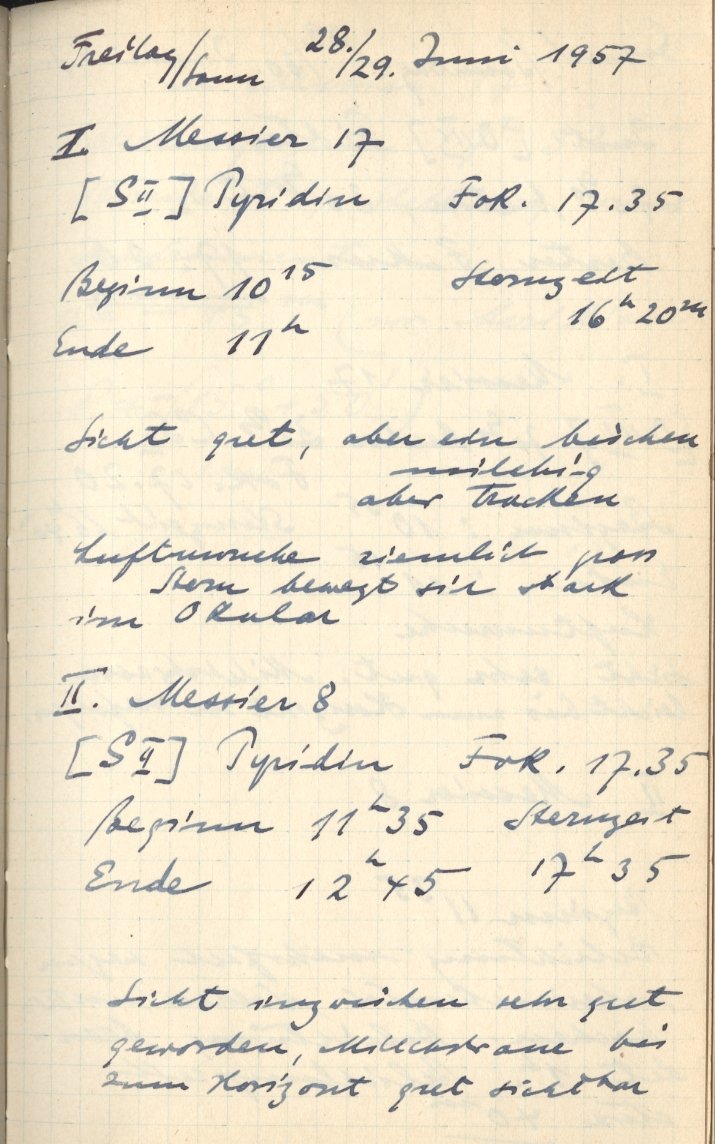 Freitag/Sonn 28./29. Juni 1957
I. Messier 17
[SII] Pyridin Fok. 17.35
Beginn 10 15 Sternzeit
16h 20m
Ende 11h
Sicht gut, aber ein bischen
milchig
aber trocken
Luftunruhe ziemlich gross
Stern bewegt sich stark
im Okular
II. Messier 8
[SII] Pyridin Fok. 17.35
Beginn 11h 35 Sternzeit
Ende 12h 45 17h 35
Sicht inzwischen sehr gut
geworden, Milchstrasse bis
zum Horizont gut sichtbar